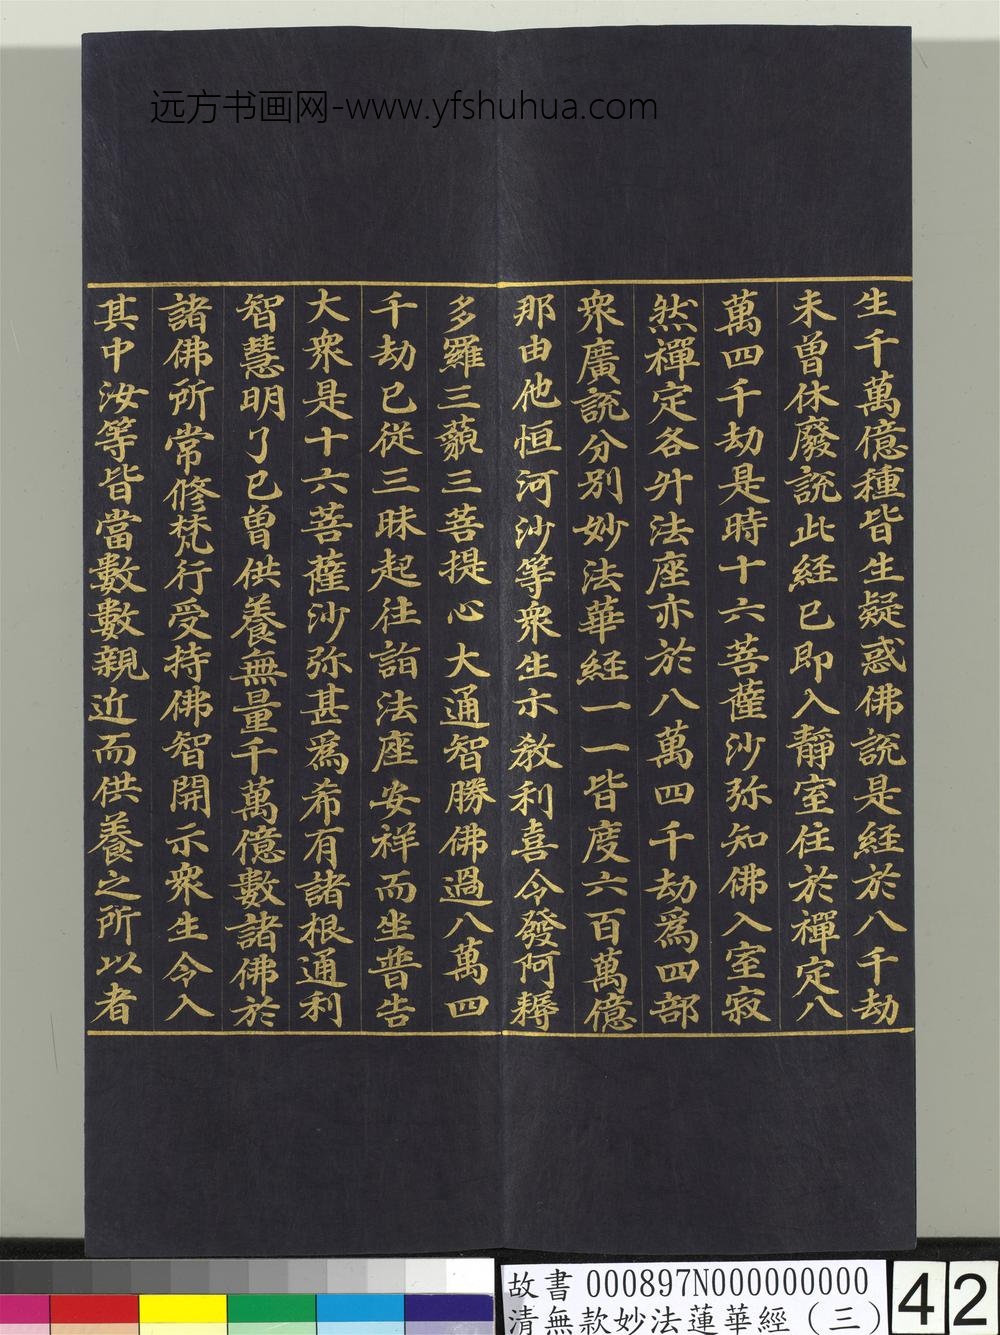 远方书画网-www.yfshuhua.com
生千萬億種皆生疑惑佛說是經於八千劫
未曾休廢說此經已即入靜室住於禪定八
萬四千劫是時十六菩薩沙弥知佛入室寂
然禪定各升法座亦於八萬四千劫為四部
眾廣說分別妙法華經一一皆度六百萬億
那由他恒河沙等眾生示教利喜令發阿耨
多羅三藐三菩提心大通智勝佛過八萬四
千劫已從三昧起往詣法座安祥而坐普告
大眾是十六菩薩沙弥甚為希有諸根通利
智慧明了已曾供養無量千萬億數諸佛於
諸佛所常修梵行受持佛智開示眾生令入
其中汝等皆當數數親近而供養之所以者
故書 000897N000000000
清無款妙法蓮華經（三）
42